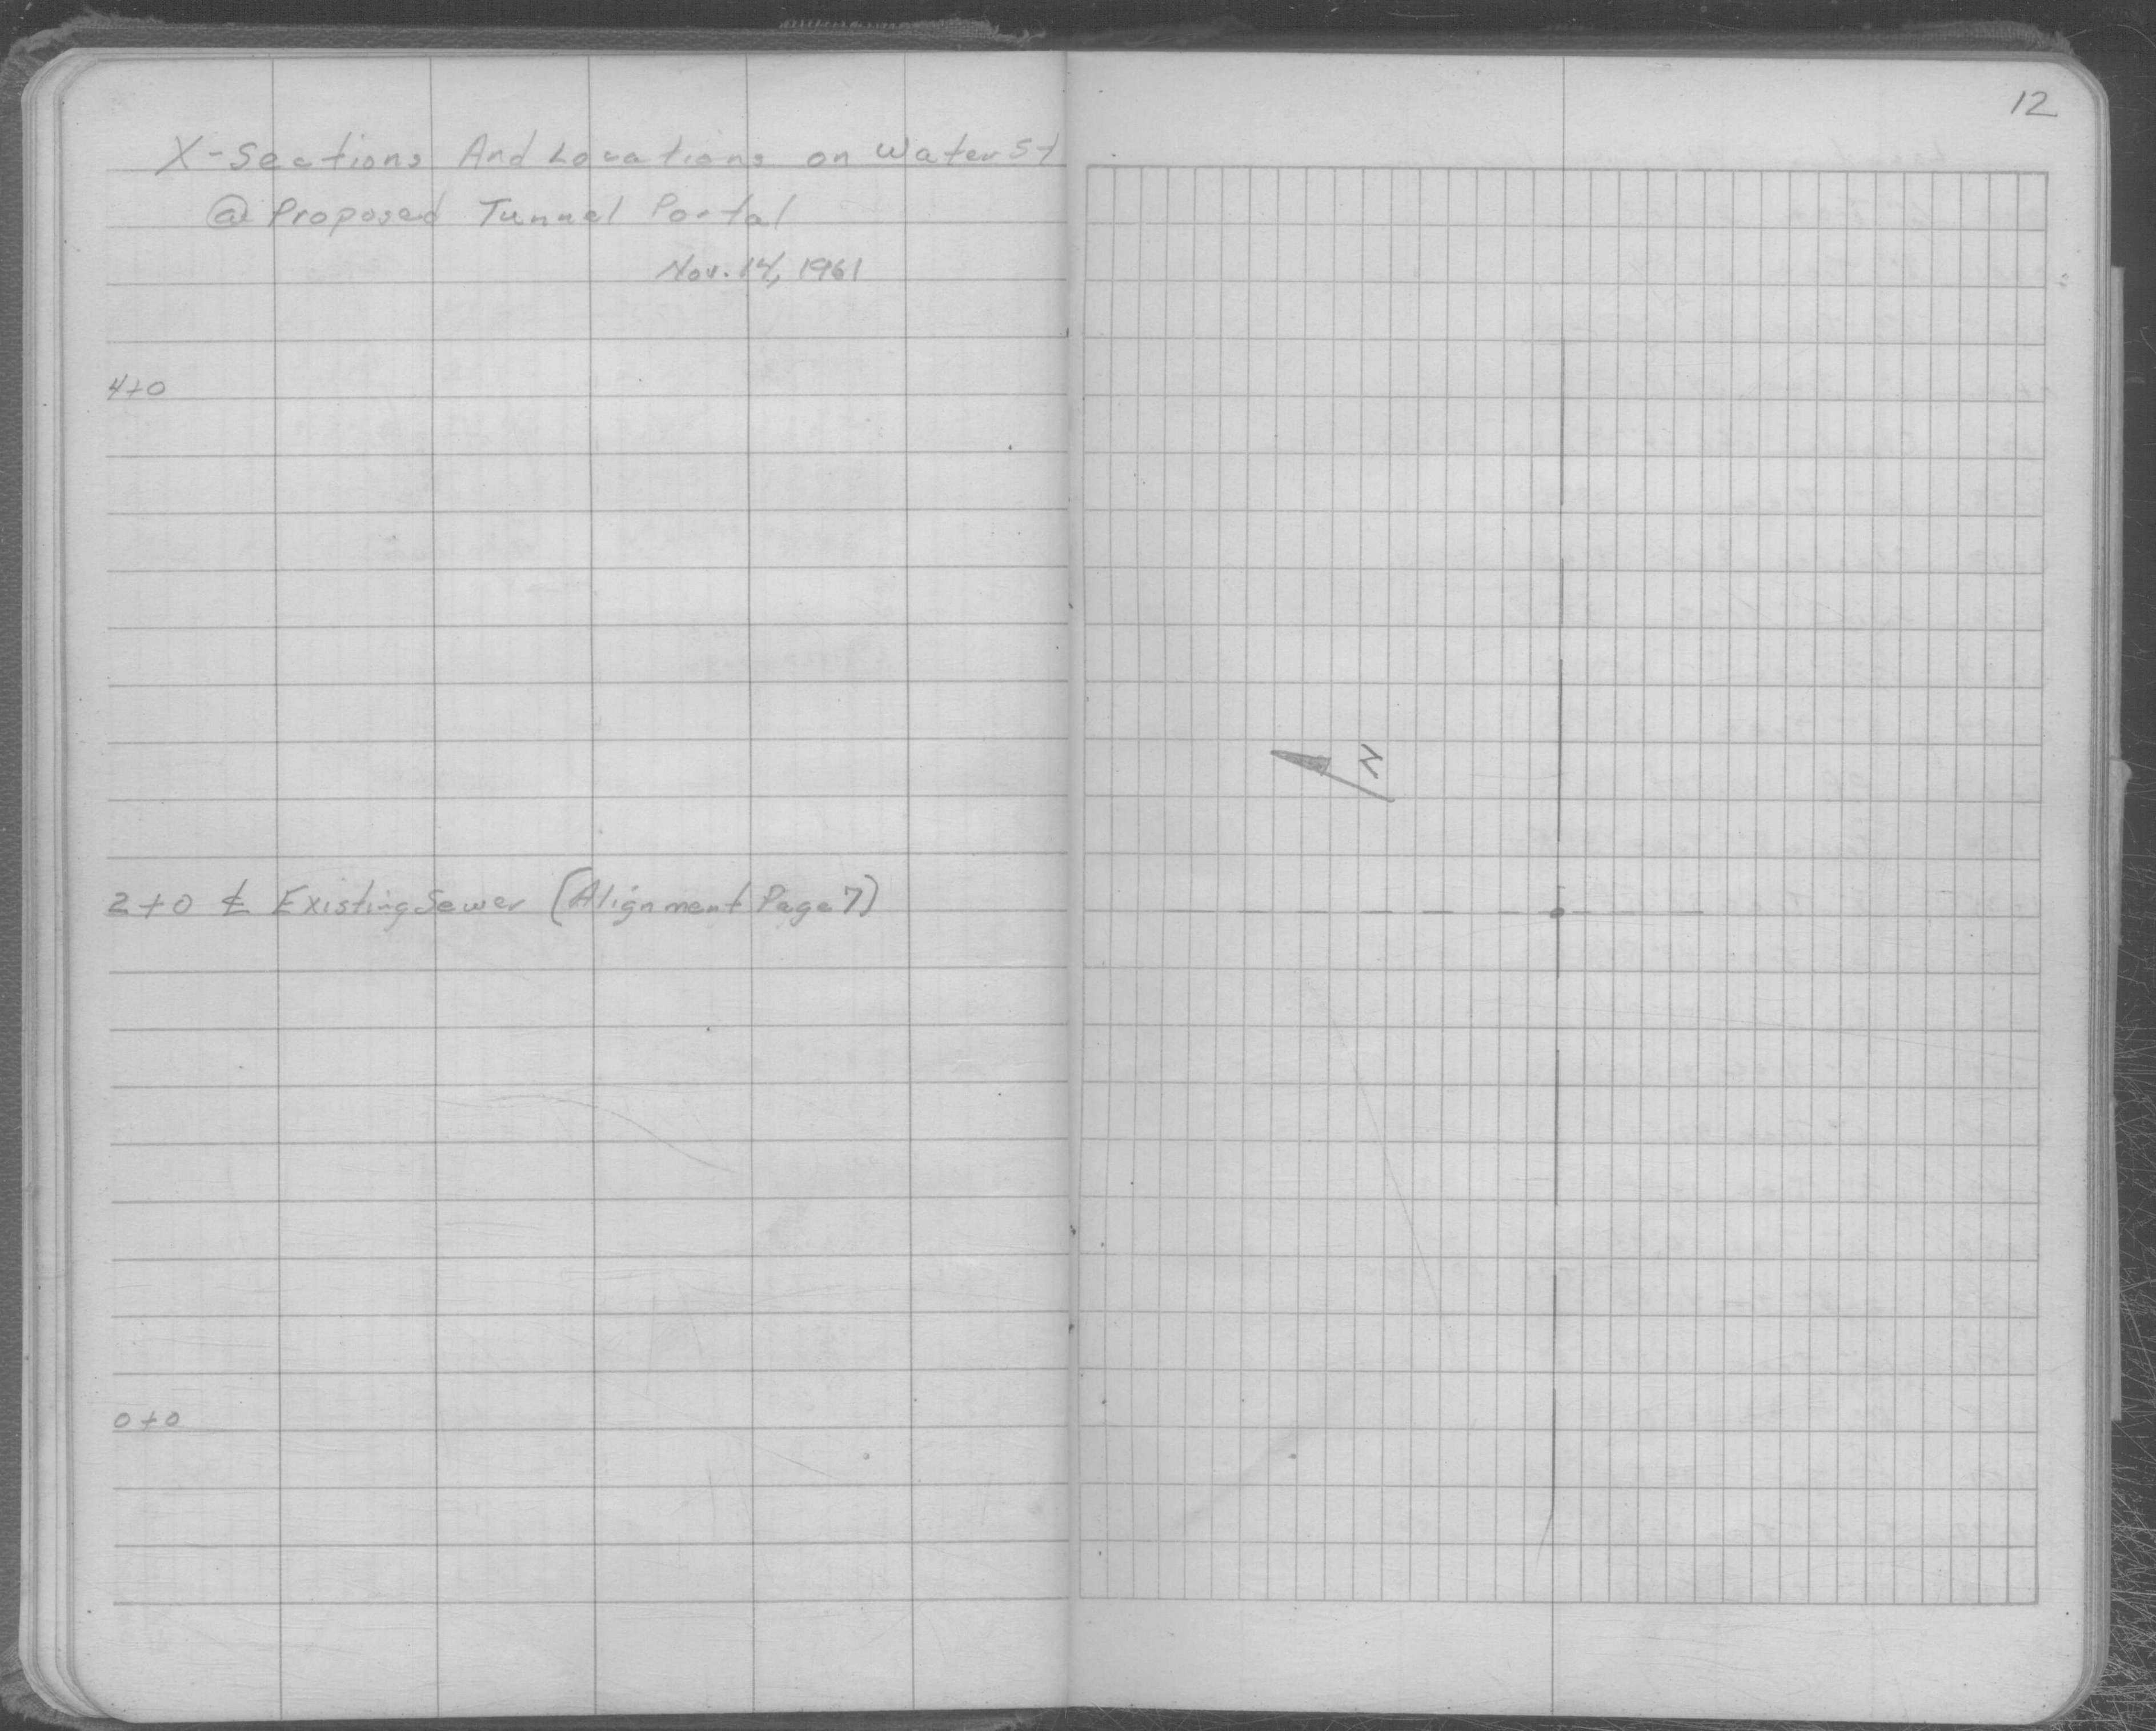 12
X-Sections And Locations on Water St
@ Proposed Tunnel Portal
Nov. 14, 1961
4+0
N
2+0 ℄ Existing Sewer (Alignment Page 7)
0+0